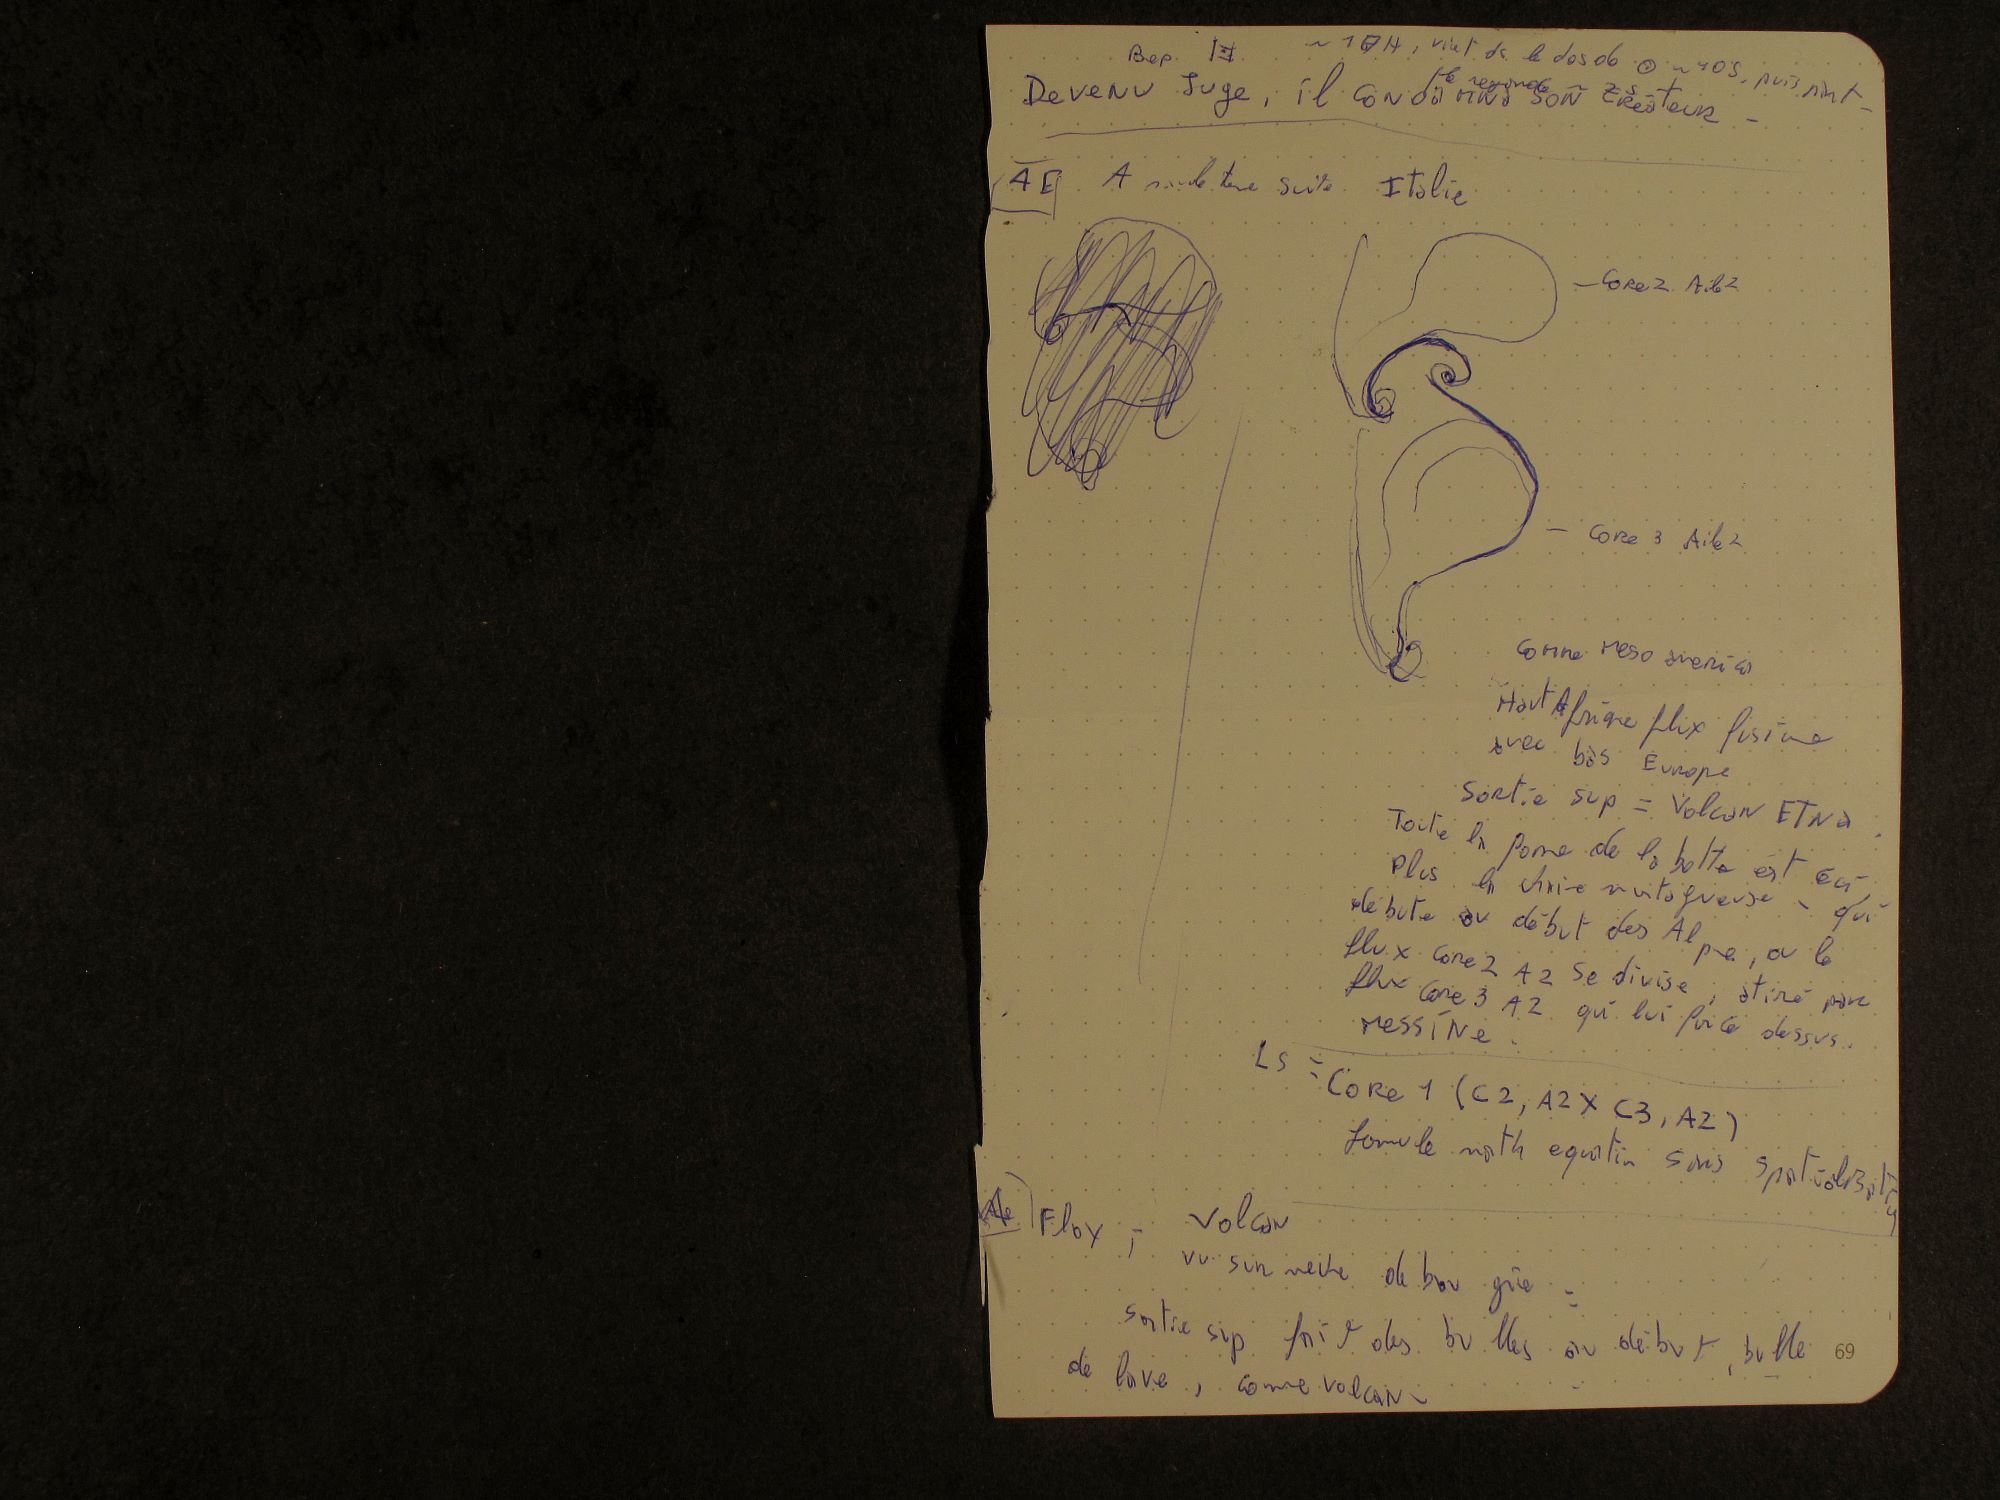 Bep. III ~ 1 H, vient de le dos de ~ 40s, puis
Devenu Juge, il condamna son Créateur -
AE A suite Italie
- Core 2 Aile 2
- Core 3 Aile 2
comme meso america
Haut Afrique flux fusionne
avec bas Europe
Sortie sup = Volcan ETNA.
Toute la forme de la botte est
Plus la chaine montagneuse - qui
debute au début des Alpe, ou le
flux core 2 A2 se divise, atiré par
flux core 3 A2 qui lui fonce dessus.
Messine.
LS = Core 1 (C2, A2 X C3, A2)
formule math equation sans spatialisation
Flox ; Volcan
vu sur de bou
sortie sup fait des bulles au début, bulle
de lave, comme volcan
69